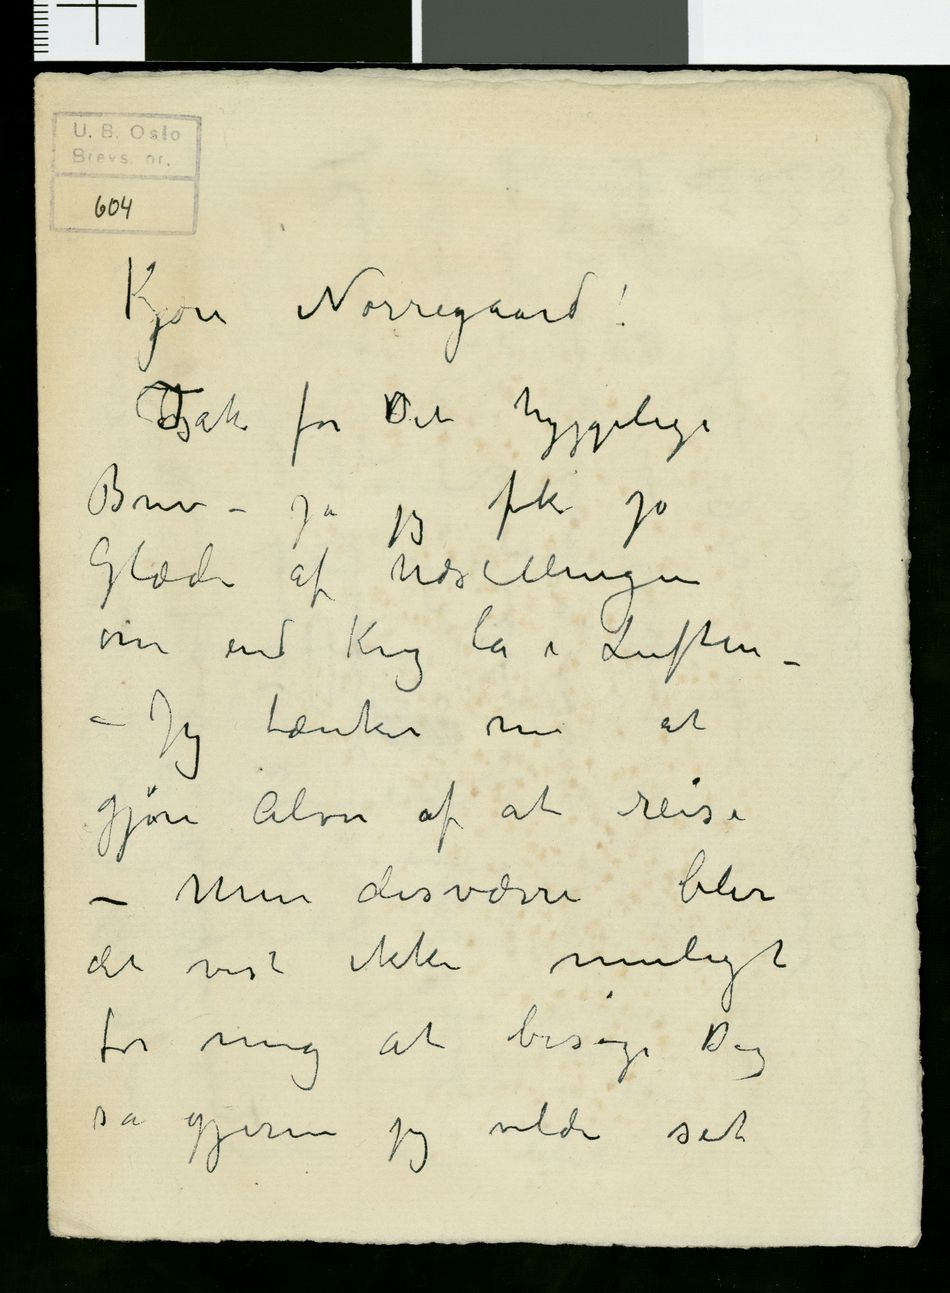 U. B. Oslo
Brevs. nr.
604
Kjære Nørregaard!
Tak for Dit hyggelige
Brev – ja jeg fik jo
Glæde af Udstillingen
om end Krig la i Luften –
– Jeg tænker nu at
gjøre Alvor af at reise
– Men desværre blir
det vist ikke muligt
for mig at besøge Dig
så gjerne jeg vilde set